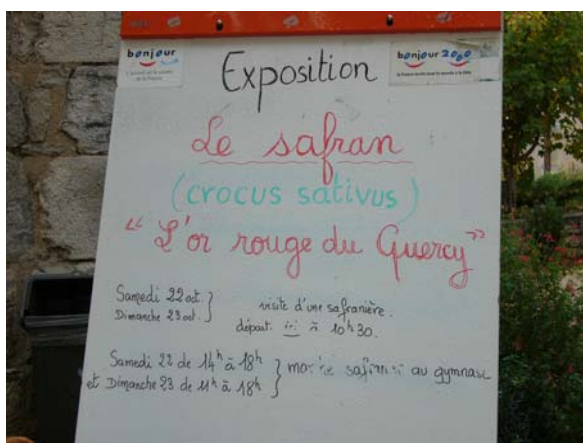 bonjour
bonjour 2000
Exposition
Le safran
(crocus sativus)
"L'or rouge du Quercy"
Samedi 22 oct.
Dimanche 23 oct. } visite d'une safranière.
départ ici à 10h30.
Samedi 22 de 14h à 18h
et Dimanche 23 de 11h à 18h } au gymnase